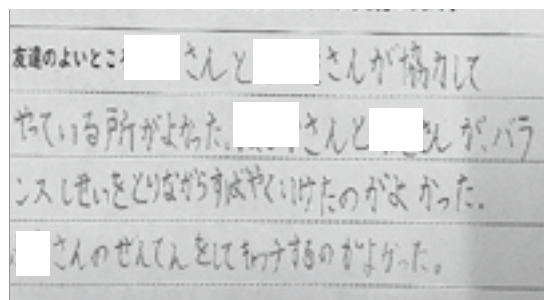 友達のよいところ さんと さんが協力して
やっている所がよかった。 さんと さんが、バラ
ンスしせいをとりながらすばやくいけたのがよかった。
さんのぜんてんをしてキャッチするのがよかった。